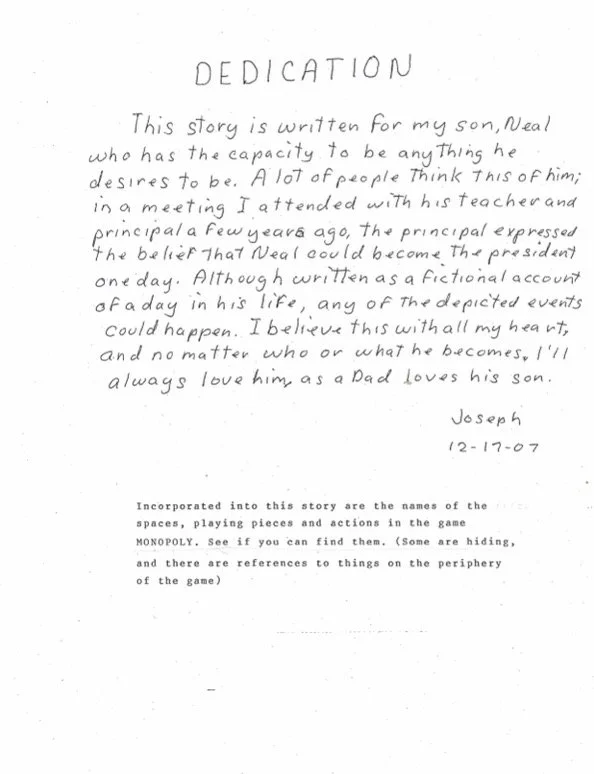 DEDICATION
This story is written for my son, Neal
who has the capacity to be anything he
desires to be. A lot of people think this of him;
in a meeting I attended with his teacher and
principal a few years ago, the principal expressed
the belief that Neal could become the president
one day. Although written as a fictional account
of a day in his life, any of the depicted events
could happen. I believe this with all my heart,
and no matter who or what he becomes, I'll
always love him, as a Dad loves his son.
Joseph
12-17-07
Incorporated into this story are the names of the
spaces, playing pieces and actions in the game
MONOPOLY. See if you can find them. (Some are hiding,
and there are references to things on the periphery
of the game)